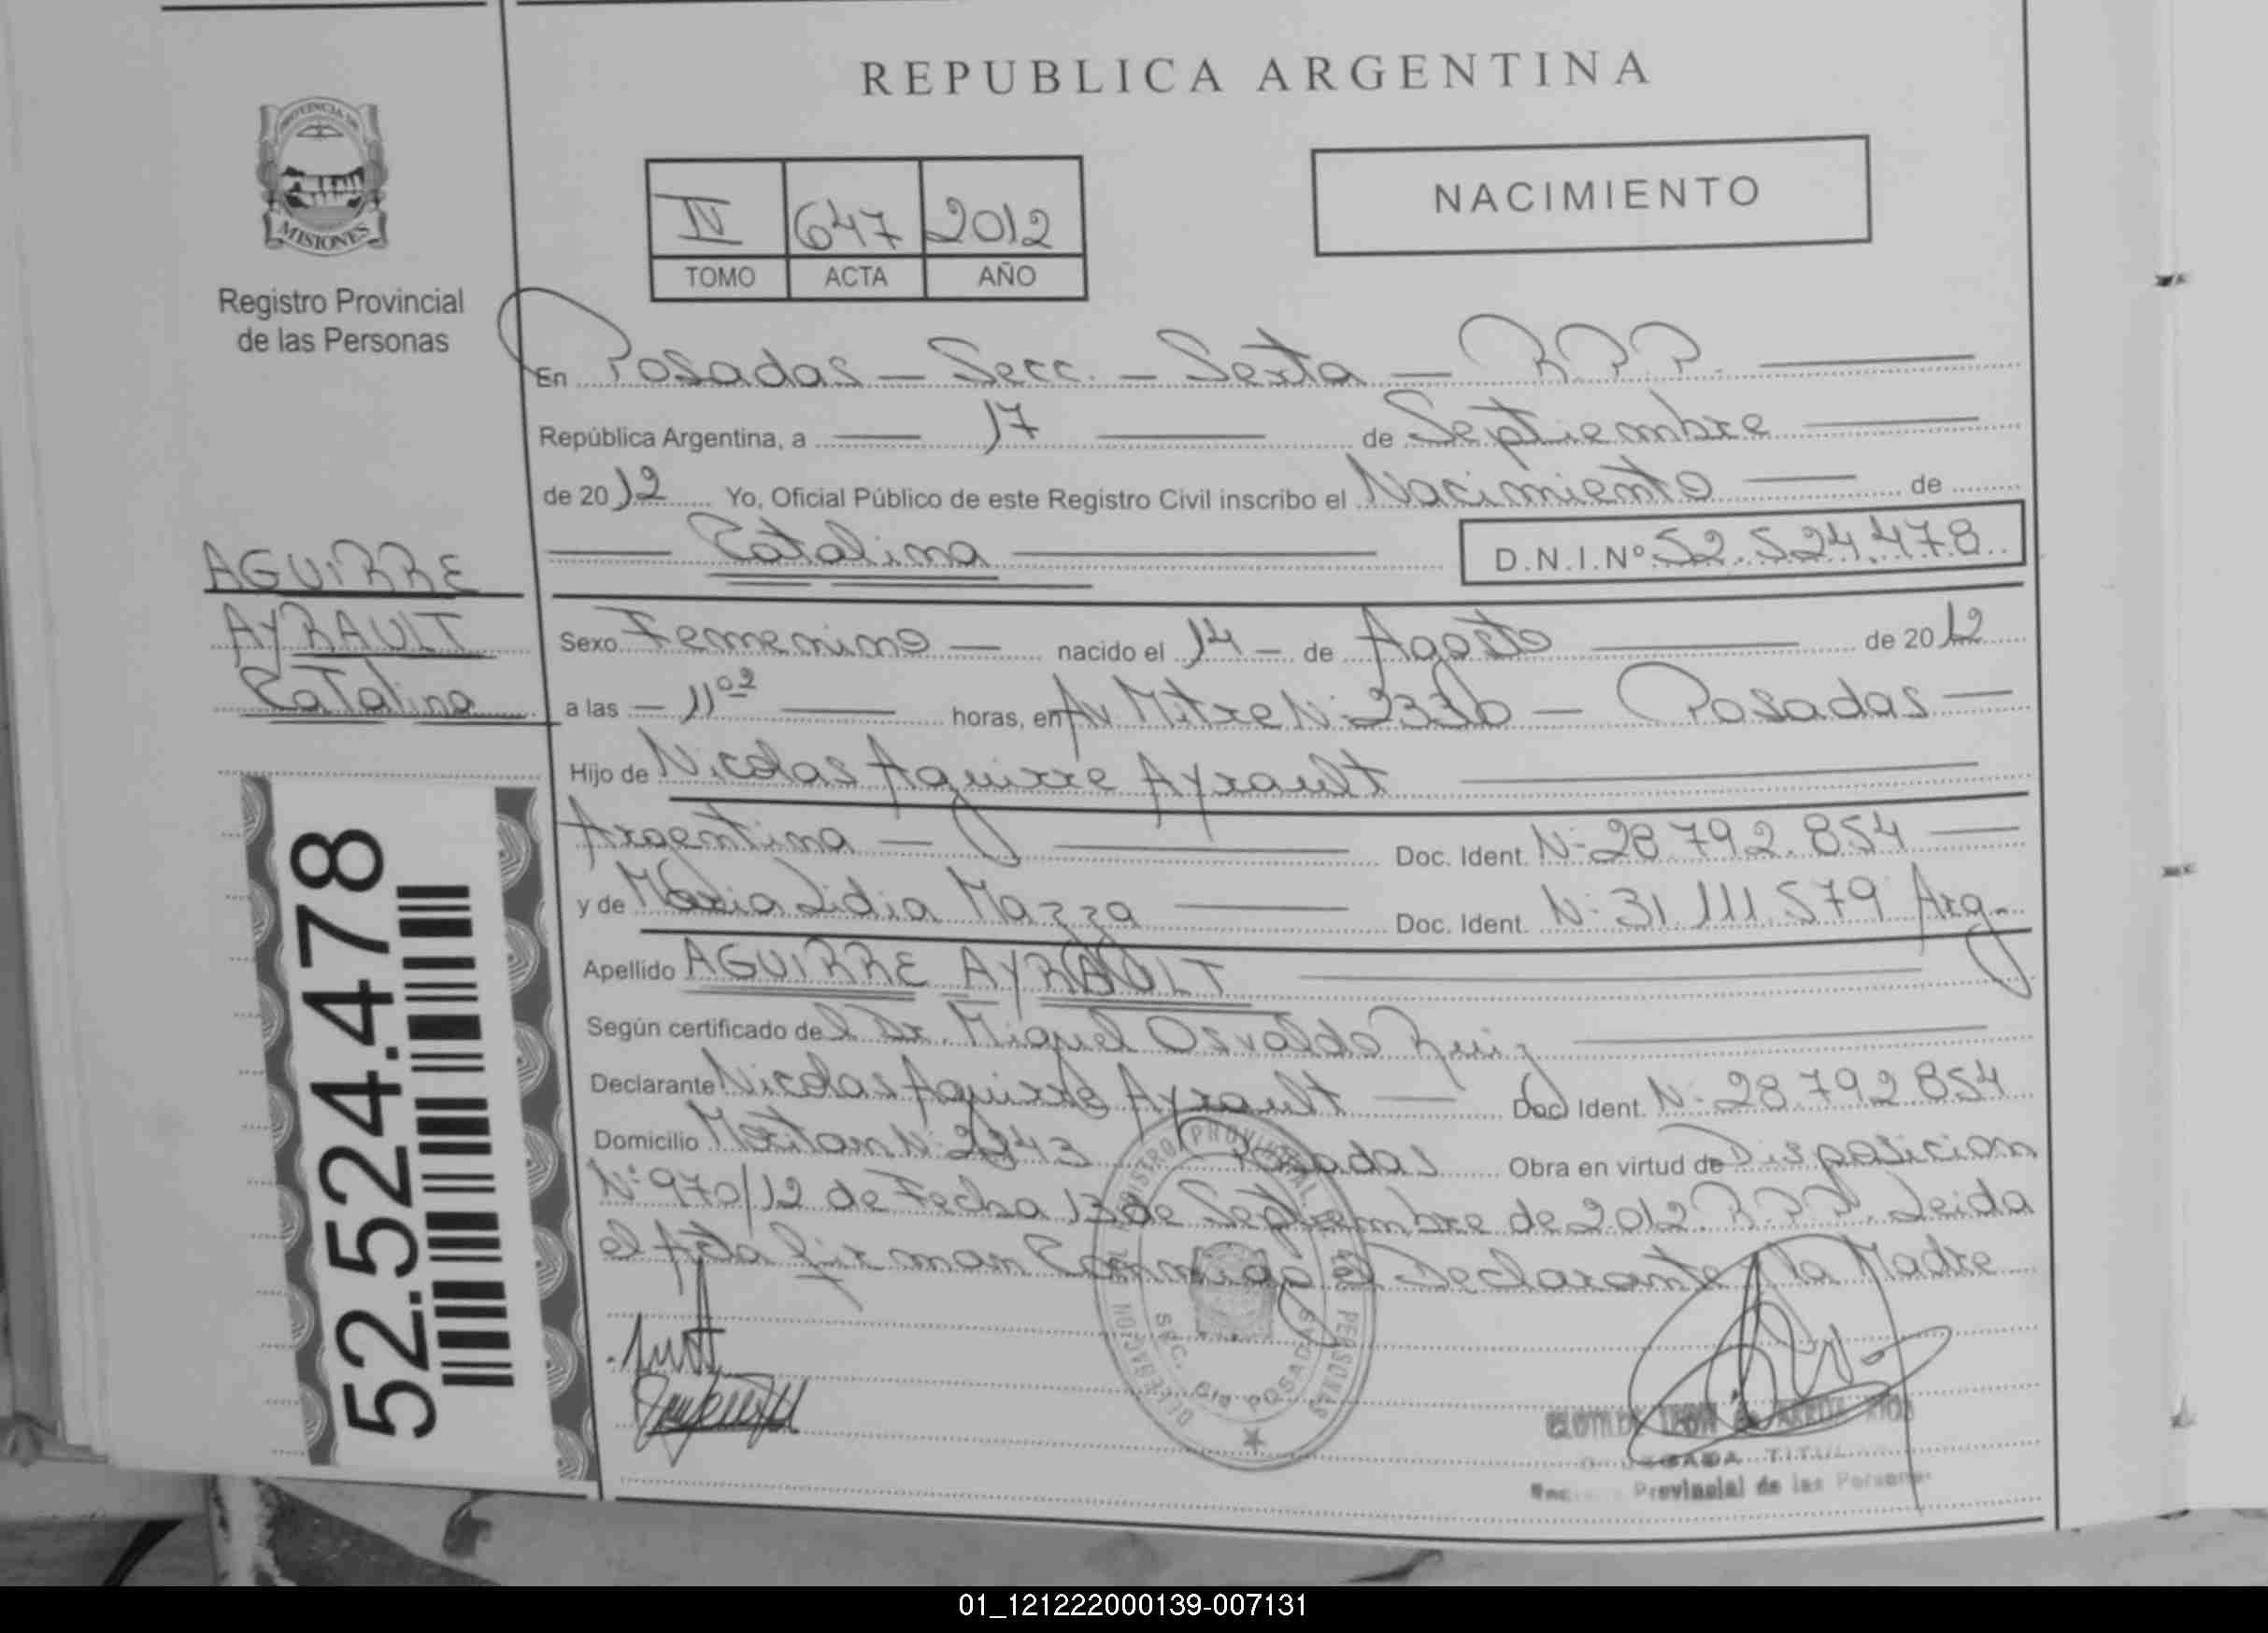 REPUBLICA ARGENTINA
PROVINCIA DE
MISIONES
Registro Provincial
de las Personas
NACIMIENTO
IV 647 2012
TOMO ACTA AÑO
En Posadas - Secc. - Sexta - R.P.P.
República Argentina, a 17 de Septiembre
de 2012 Yo, Oficial Público de este Registro Civil inscribo el Nacimiento de
Catalina D.N.I.Nº 52.524.478
AGUIRRE
AYRAULT
Catalina
Sexo Femenino nacido el 14 - de Agosto de 2012
a las - 11º² horas, en Av Mitre N: 2330 - Posadas
Hijo de Nicolas Aguirre Ayrault
Argentina Doc. Ident. N: 28.792.854
y de Maria Lidia Mazza Doc. Ident. N: 31.111.579 Arg
Apellido AGUIRRE AYRAULT
Según certificado del Dr. Miguel Osvaldo Ruiz
Declarante Nicolas Aguirre Ayrault Doc Ident. N: 28.792.854
Domicilio N: Posadas Obra en virtud de Disposicion
Nº 970/12 de Fecha 13 de Septiembre de 2012. R.P.P. Leida
el Acta firman Conmigo el Declarante y la Madre
52.524.478
REGISTRO PROVINCIAL DE LAS PERSONAS
DELEGACION
SEC. 6ta POSADAS
TITUL
Provincial de las Personas
01_121222000139-007131